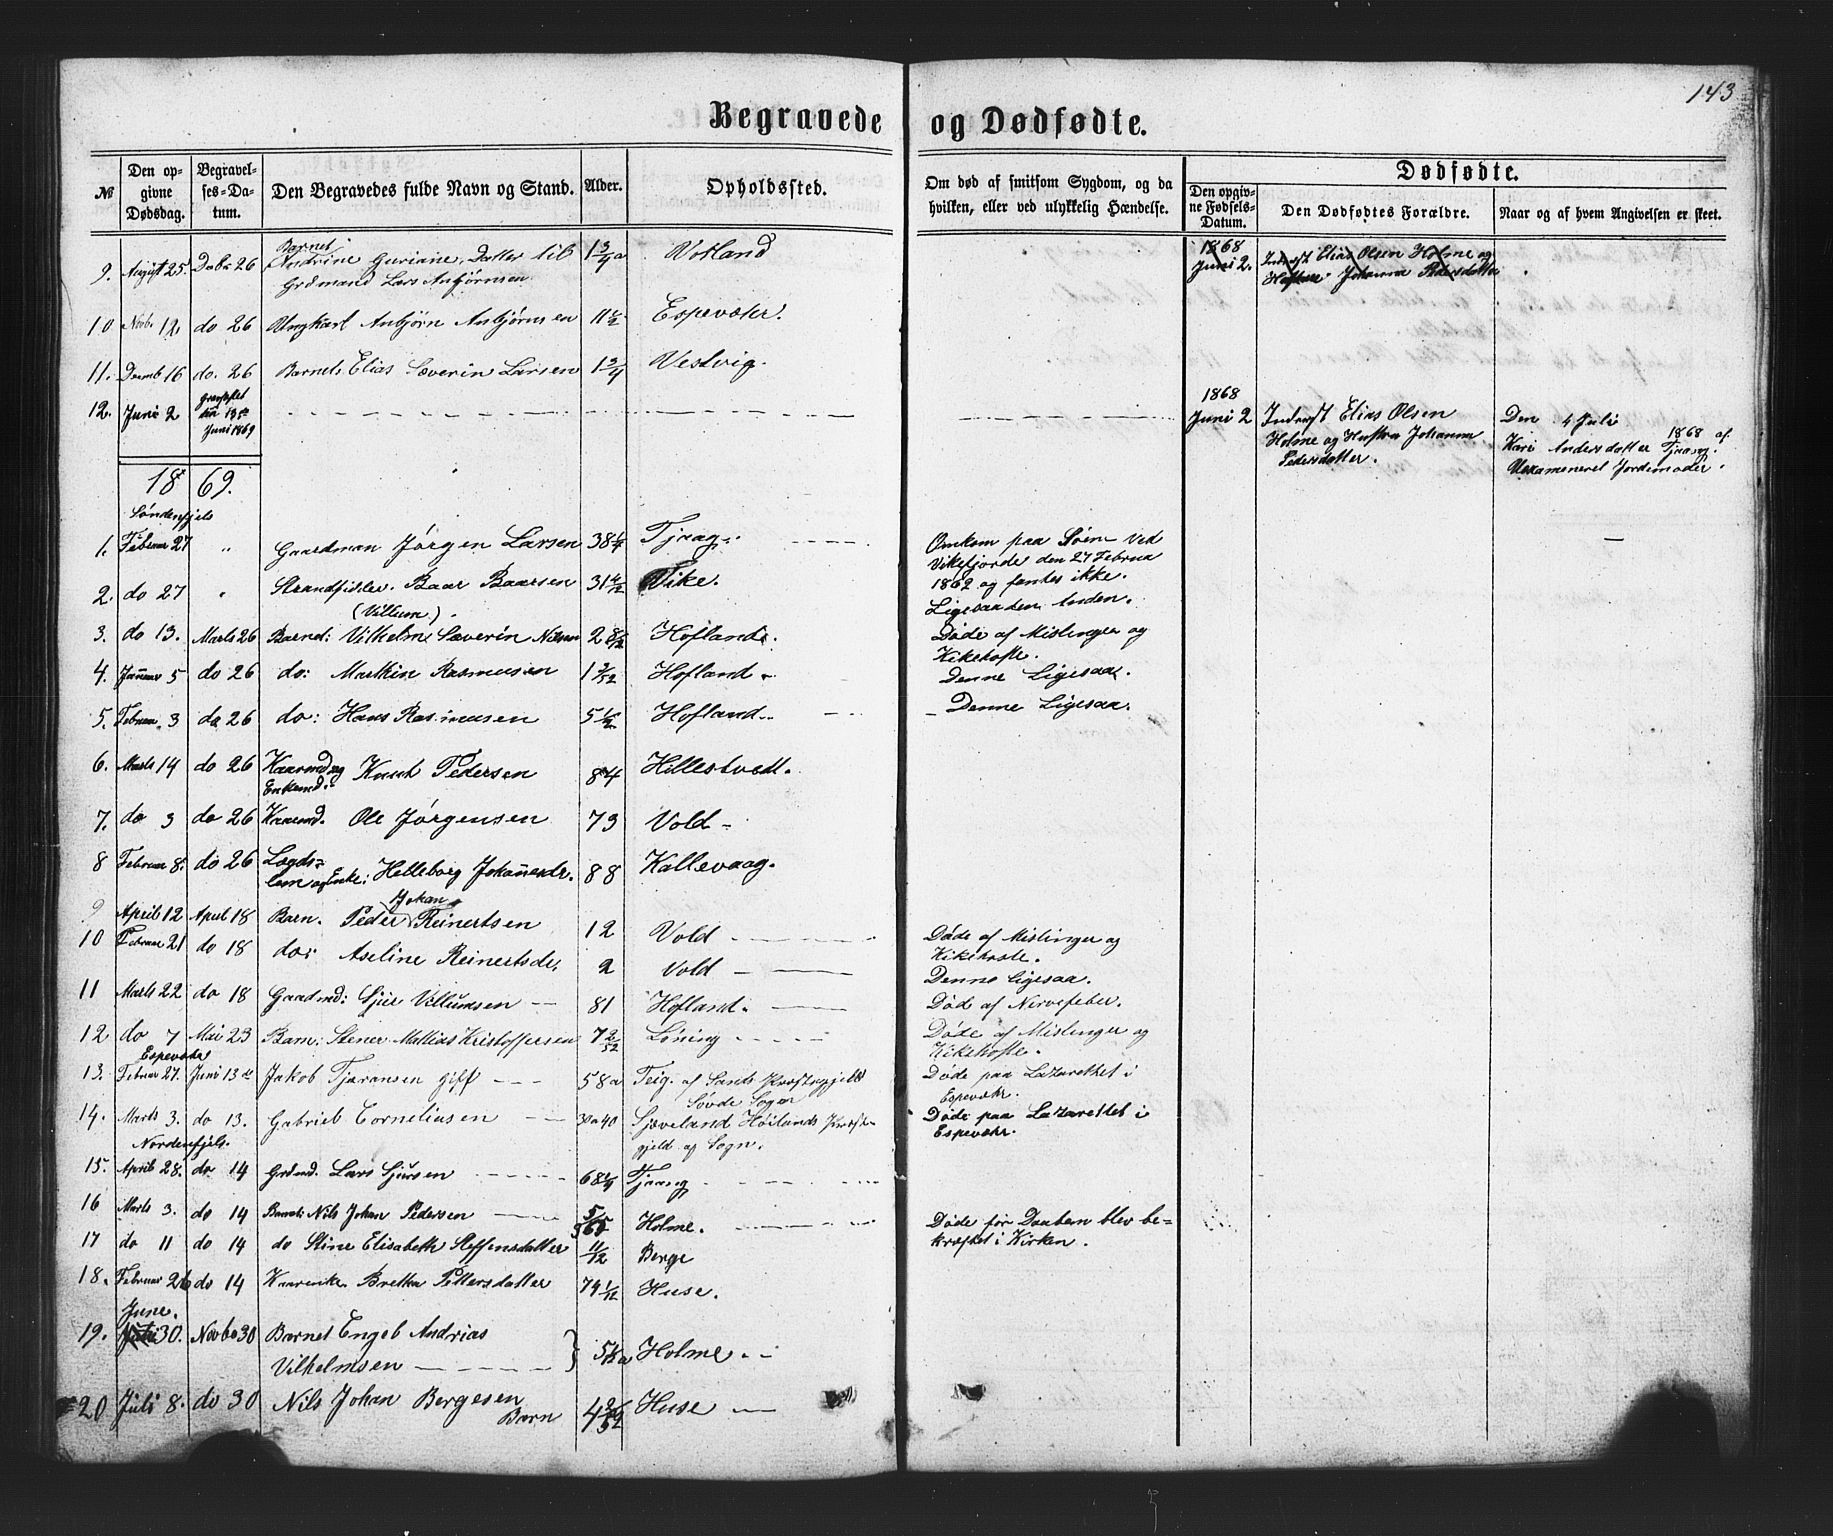 143
Begravede og Dødfødte.
№ Den opgivne Dødsdag. Begravelses-Datum. Den Begravedes fulde Navn og Stand. Alder. Opholdssted. Om død af smitsom Sygdom, og da hvilken, eller ved ulykkelig Hændelse. Dødfødte. Den opgivne Fødsels-Datum. Den Dødfødtes Forældre. Naar og af hvem Angivelsen er skeet.
9. August 25. Debr 26 Barnet Andrine Guriane, Datter til 1 3/4 a Votland 1868 Juni 2. Indrgst Elias Olsen Holme og
Grdmand Lars Anbjørnsen Hustru Johanna Pedersdatter
10 Novbr 12. do 26 Ungkarl Anbjørn Anbjørnsen 11 1/2 Espevær.
11. Decemb 16 do. 26 Barnet: Elias Severin Larsen 1 3/4 Vestvig.
12. Juni 2 Juni 1869 1868 Juni 2 Indrgst Elias Olsen Den 4 Juli
Holme og Hustru Johanna 1868 af
Pedersdatter. Kari Andersdatter Tjrang.
Uexamineret Jordemoder.
1869.
Søndenfjels
1. Februar 27 " Gaardman Jørgen Larsen 38 Tjrang Omkom paa Søen ved
Vikefjorde den 27 Februa
1869 og fantes ikke.
2. do 27 " Strandsidder. Baar Baarsen 31 Vike. Ligesaa den Anden.
(Villum)
3. do 13. Marts 26 Barnet: Vilhelm Severin Nilsen 2 8/12 Hofland. Døde af Mislinger og
Kikehoste.
4. Januar 5 do 26 do: Marthin Rasmusen 1 Hofland. Denne Ligesaa.
5. Februar 3 do 26 do: Hans Rasmusen 5 Hofland. Denne Ligesaa.
6. Marts 14 do 26 Kaarmd og Enkemd: Knut Pedersen 84 Hillestvett.
7. do 3 do 26 Kaarmd. Ole Jørgensen 73 Vold
8 Februar 8. do 26 Lægds-lem og Enke: Helleborg Johannesdr. 88 Kallevaag.
9 April 12 April 18 Barn. Peder Johan Reinertsen 12 Vold Døde af Mislinger og
Kikehoste.
10 Februar 21 do 18 do: Aseline Reinertsdr. 2 Vold Denne ligesaa.
11 Marts 22 do 18 Gaardmd: Sjur Villumsen 81 Hofland. Død af Nervefeber.
12 do 7 Mai 23 Barn: Stener Mathias Kristoffersen 7 Løning Døde af Mislinger og
Kikehoste.
Espevær
13. Februar 27. Juni 13de Jakob Tjøransen gift 58 a Teig. af Sands Præstegjeld Døde paa Lazarettet i
Søvde Sogn Espevær.
14. Marts 3. do 13. Gabriel Corneliusen 30 a 40 Sjæveland Høilands Præste- Døde paa Lazarettet i
gjeld og Sogn. Espevær.
Nordenfjels.
15. April 28. do 14 Grdmd. Lars Sjursen 68 Tjrang
16 Marts 3. do 14 Barnet: Nils Johan Pedersen Holme. Døde før Daaben blev be-
kræftet i Kirken.
17 do 11 do 14 do Stine Elisabeth Steffensdatter 11/12 Berge
18. Februar 26 do 14 Kaarenke. Bretha Pettersdatter 74 1/12 Huse.
19. June. 30. Novbr 30 Barnet Engel Andrias
Vilhelmsen 5 Holme.
20 Juli 8. do 30 Nils Johan Bergesen 4 Huse
Barn